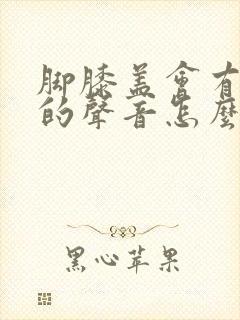 腳膝盖會有
的聲音怎麼
黑心苹果